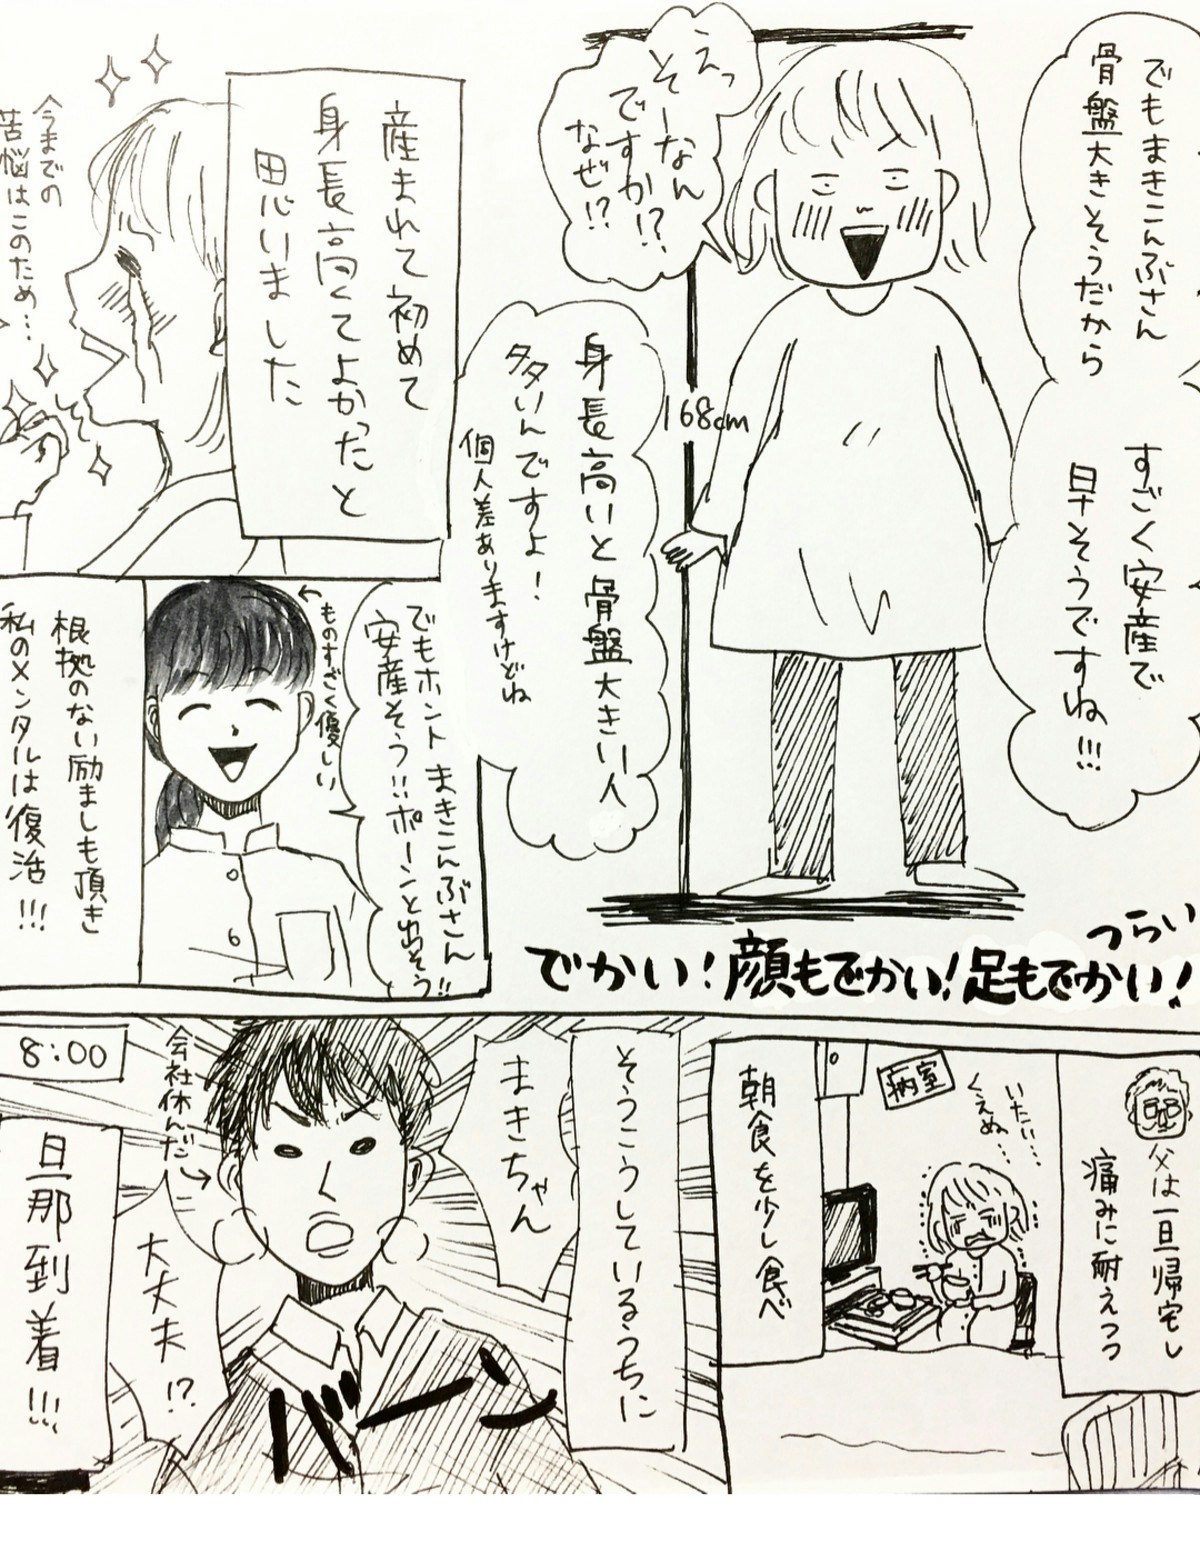 でもまきこんぶさん
骨盤大きそうだから
すごく安産で
早そうですね!!!
えっ
そーなん
ですか!?
なぜ!?
168cm
身長高いと骨盤大きい人
多いんですよ!
個人差ありますけどね
つらい
でかい!顔もでかい!足もでかい!
産まれて初めて
身長高くてよかったと
思いました
今までの
苦悩はこのため…
でもホントまきこんぶさん
安産そう!!ポーンと出そう!!
ものすごく優しい
根拠のない励ましも頂き
私のメンタルは復活!!!
父は一旦帰宅し
痛みに耐えつつ
病室
いたい…
くえぬ…
朝食を少し食べ
そうこうしているうちに
まきちゃん
会社休んだ
大丈夫!?
バーン
8:00
旦那到着!!!